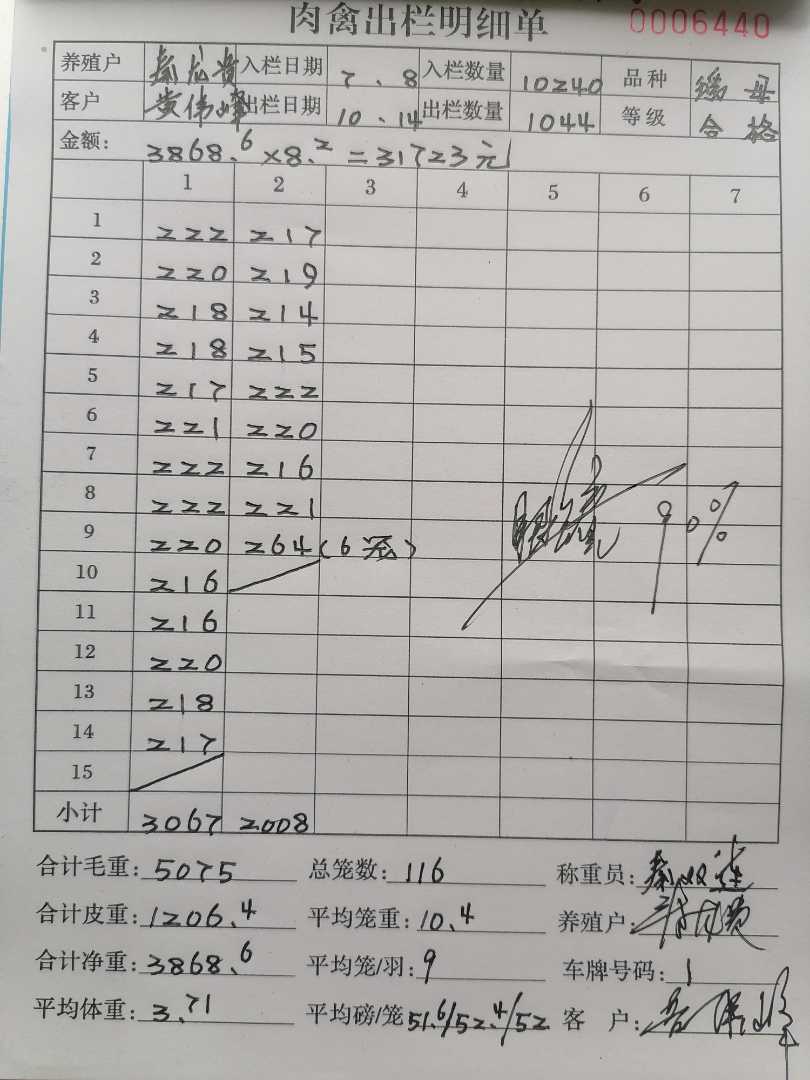 肉禽出栏明细单 0006440
养殖户 秦龙贵 入栏日期 7.8 入栏数量 10240 品种 母
客户 黄伟峰 出栏日期 10.14 出栏数量 1044 等级 合格
金额: 3868.6×8.2=31723元
1 2 3 4 5 6 7
1 222 217
2 220 219
3 218 214
4 218 215
5 217 222
6 221 220
7 222 216
8 222 221
9 220 264(6笼)
10 216
11 216
12 220
13 218
14 217
15
90%
小计 3067 2008
合计毛重: 5075 总笼数: 116 称重员:
合计皮重: 1206.4 平均笼重: 10.4 养殖户:
合计净重: 3868.6 平均笼/羽: 9 车牌号码: 1
平均体重: 3.71 平均磅/笼 51.6/52.4/52 客 户: